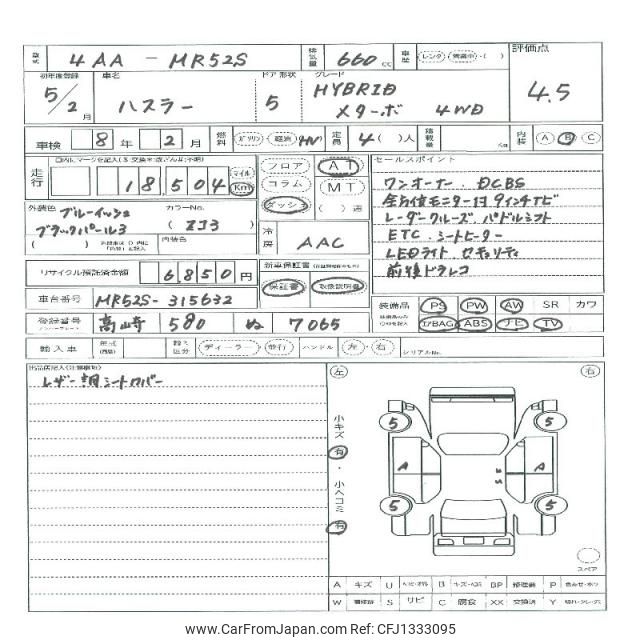 型式 4AA - MR52S 排気量 660 cc 車歴 レンタ・営業中・( ) 評価点
初年度登録 車名 ドア 形状 グレード
5/2月 ハスラー 5 HYBRID 4.5
メターボ 4WD
車検 8年 2月 燃料 ガソリン・軽油 HV 定員 4( )人 積載量 Kg 内装 A B C
走行 18,504 マイル Km フロア AT セールスポイント
コラム MT ワンオーナー. DCBS
ダッシュ ( )速 全方位モニター付9インチナビ
外装色 ブルーイッシュ カラーNo. レーダークルーズ. パドルシフト
ブラックパール3 (ZJ3) 冷房 AAC ETC. シートヒーター
( ) 内装色 LEDライト. セキュリティ
リサイクル預託済金額 6,850円 新車保証書 前後ドラレコ
保証書 取扱説明書
車台番号 MR52S-315632 装備品 PS PW AW SR カワ
登録番号 高崎 580 ぬ 7065 エアBAG ABS ナビ TV
輸入車 年式 輸入区分 ディーラー・並行 ハンドル 左・右 シリアルNo.
出品店記入(注意事項)
レザー調シートカバー
左 右
小キズ 有 ・ 小ヘコミ 有
5 5
A A
5 5
スペア
A キズ U B キズ・ヘコミ BP 修理跡 P
W S サビ C 腐食 XX 交換済 Y
© CarFromJapan.com - CFJ1333095